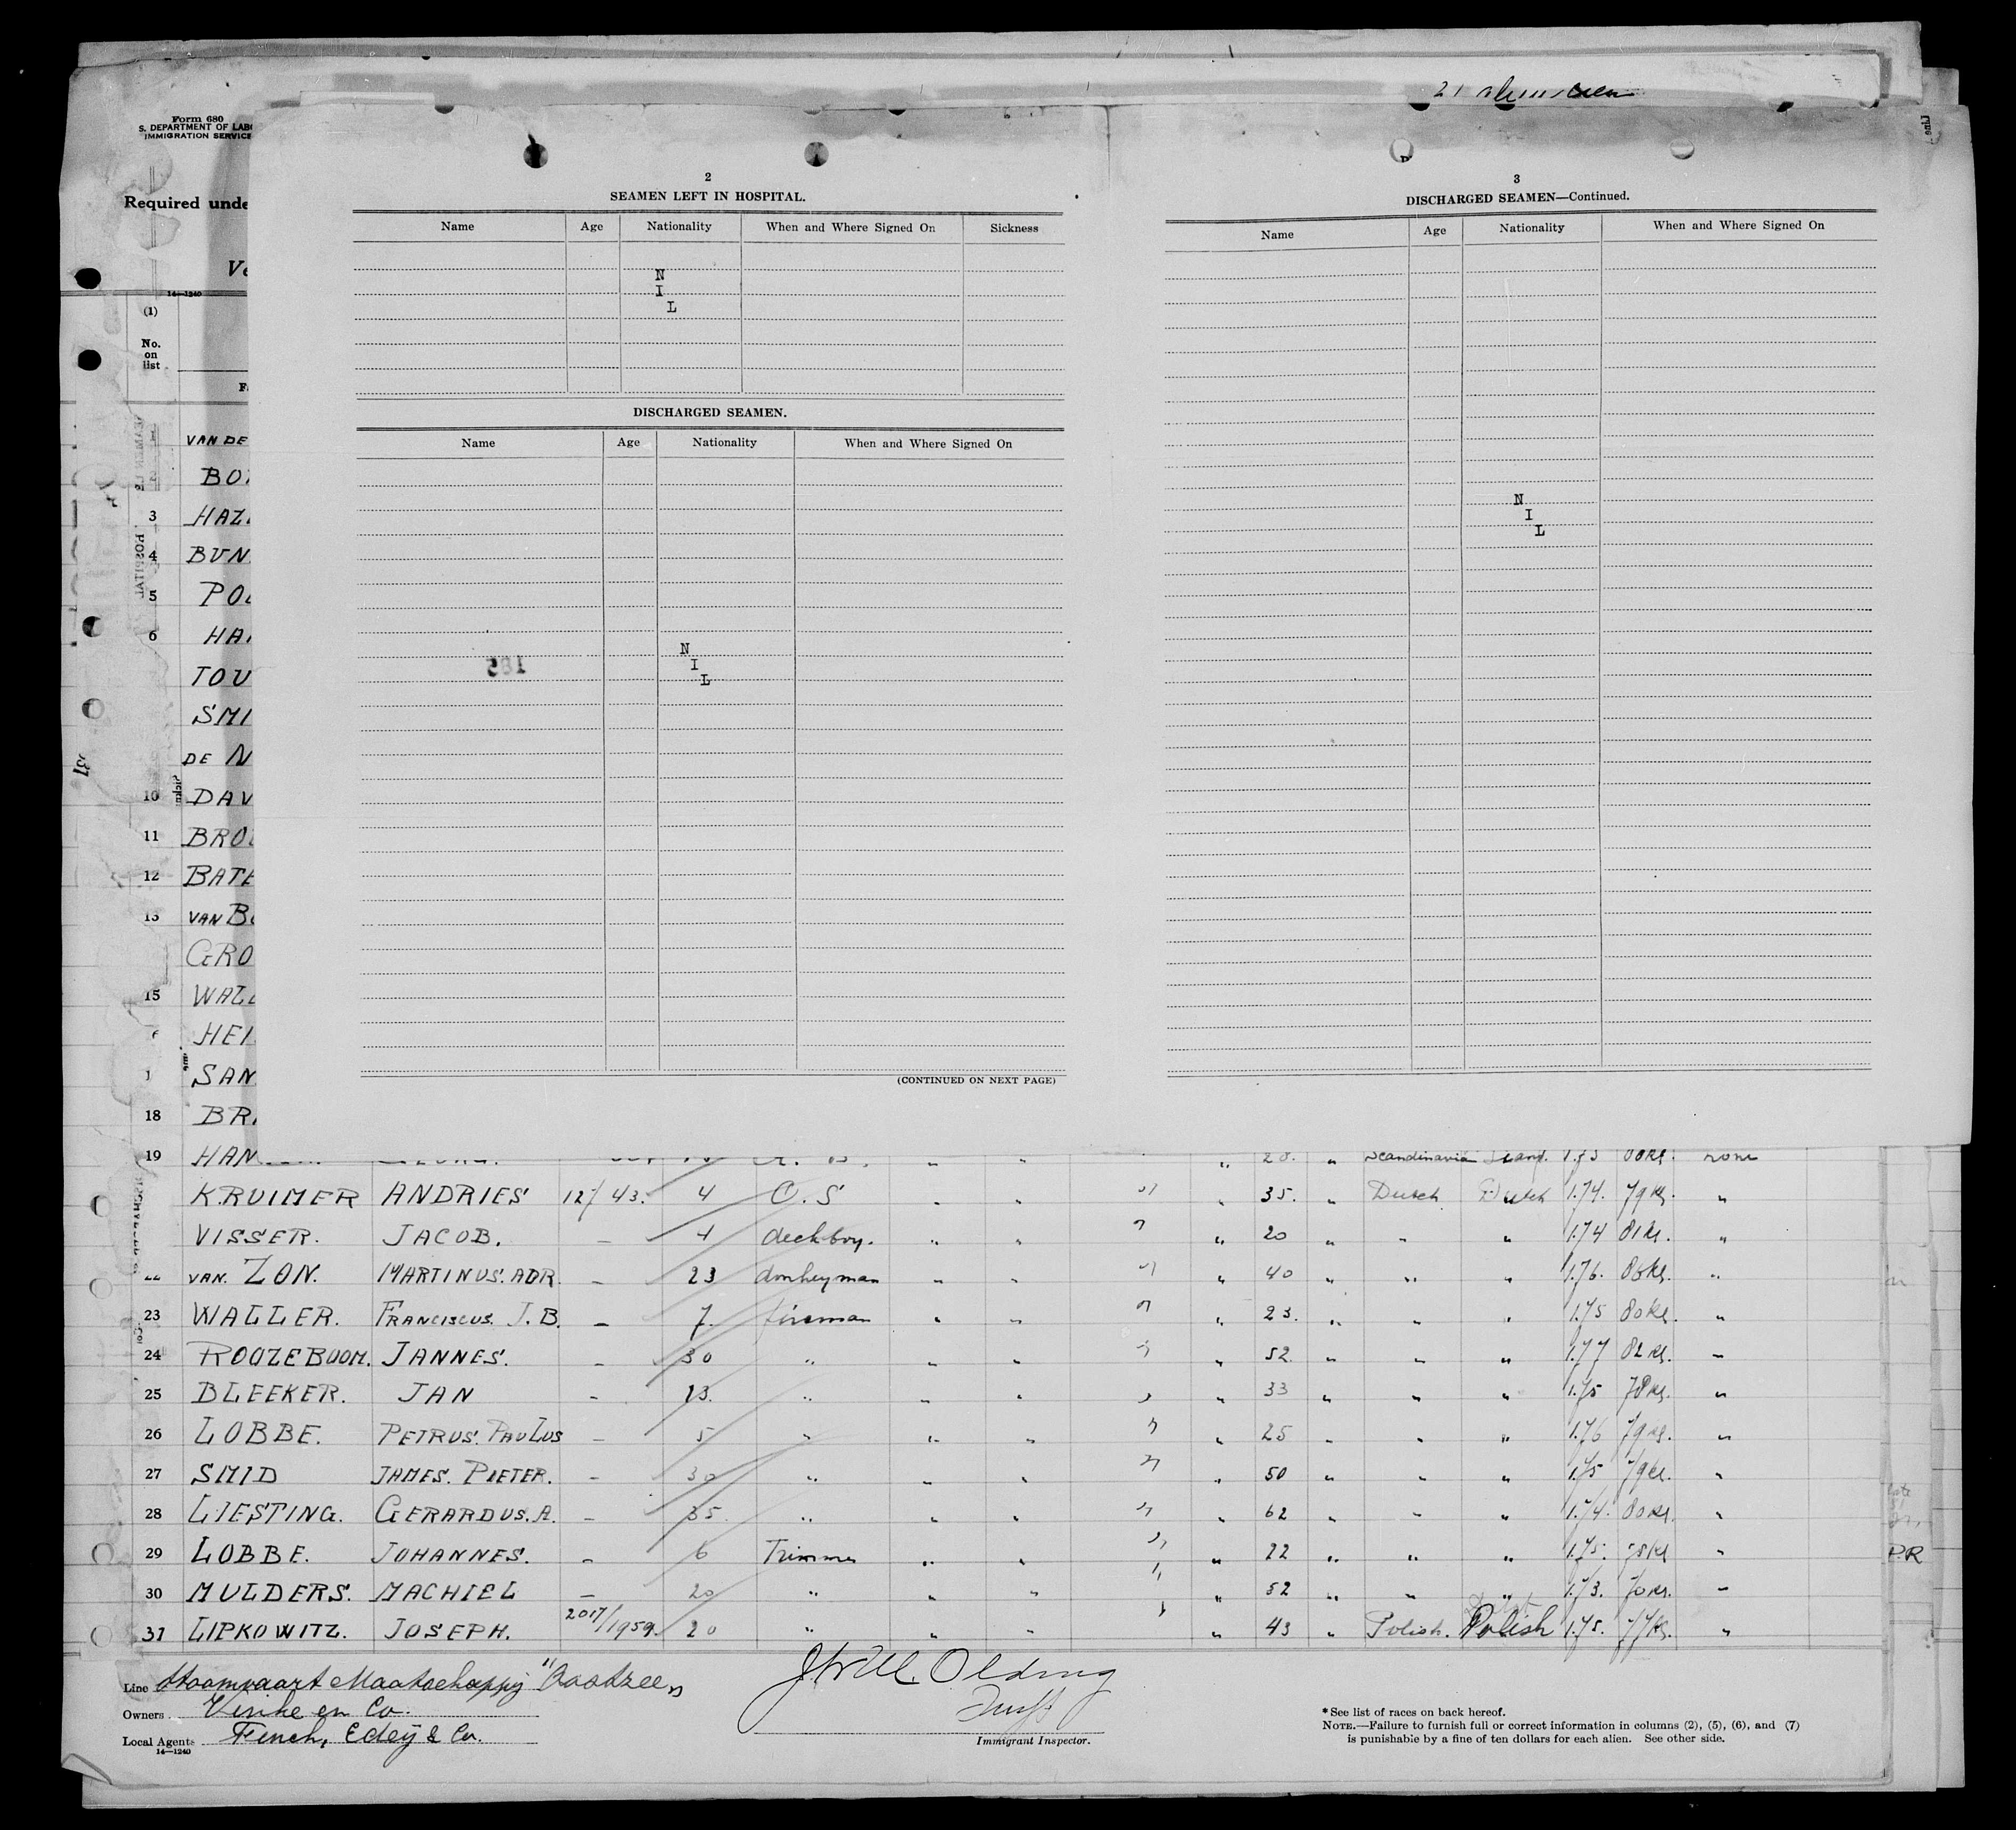 Form 680
S. DEPARTMENT OF LABO
IMMIGRATION SERVICE
Required unde
Ve
14—1240
(1)
No.
on
list
21
2
SEAMEN LEFT IN HOSPITAL.
Name Age Nationality When and Where Signed On Sickness
N
I
L
DISCHARGED SEAMEN.
Name Age Nationality When and Where Signed On
N
I
L
(CONTINUED ON NEXT PAGE)
3
DISCHARGED SEAMEN—Continued.
Name Age Nationality When and Where Signed On
N
I
L
VAN DE
BO
3 HAZ
4 BUN
5 PO
6 HA
TOU
SMI
DE N
10 DAV
11 BRO
12 BATE
13 VAN B
GRO
15 WAL
HEI
SAN
18 BR
19 HAN 28. " Scandinavia Scand. 1.73 80K. none
KRUIMER ANDRIES 12/43. 4 O.S " " " " 35. " Dutch Dutch 1.74. 79K. "
VISSER. JACOB. — 4 deckboy. " " " " 20 " " " 1.74 81K. "
VAN. ZON. MARTINUS. ADR. — 23 donkeyman " " " " 40 " " " 1.76. 80K. "
23 WALLER. FRANCISCUS. J.B. — 7. fireman " " " " 23. " " " 1.75 80K. "
24 ROOZEBOOM. JANNES. — 30 " " " " " 52 " " " 1.77 82K. "
25 BLEEKER. JAN — 13. " " " " " 33 " " " 1.75 78K. "
26 LOBBE. PETRUS. PAULUS — 5 " " " " " 25 " " " 1.76 79K. "
27 SMID JAMES. PIETER. — 30 " " " " " 50 " " " 1.75 79K. "
28 LIESTING. GERARDUS. A. — 35. " " " " " 62 " " " 1.74. 80K. "
29 LOBBE. JOHANNES. — 6 Trimmer " " " " 22 " " " 1.75. 78K "
30 MULDERS. MACHIEL — 20 " " " " " 52 " " " 1.73. 70K. "
31 LIPKOWITZ. JOSEPH. 2017/1959. 20 " " " " " 43 " Polish. Polish 1.75. 77K. "
P.R
Line Stoomvaart Maatschappij "Oostzee"
Owners Vinke en Co.
Local Agents Fench, Edeij & Co.
14—1240
Olding
Immigrant Inspector.
* See list of races on back hereof.
NOTE.—Failure to furnish full or correct information in columns (2), (5), (6), and (7)
is punishable by a fine of ten dollars for each alien. See other side.